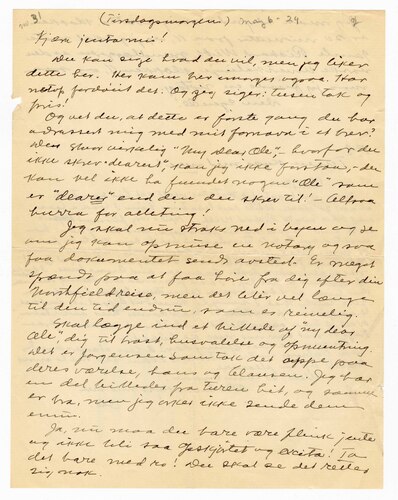 no. 3! (Tirsdagsmorgen) May 6 - 24
Kjære jenta mi!
Du kan sige hvad du vil, men jeg liker
dette her. Her kom ber imorges ogsaa. Har
netop fordøiet det. Og jeg siger: tusen tak og
pris!
Og vet du, at dette er første gang du har
adressert mig med mit fornavn i et brev?
Den skrev virkelig "My dear Ole", - hvorfor du
ikke skrev "dearest", kan jeg ikke forstaa, - du
kan vel ikke ha fundet nogen "Ole" som
er "dearer" end den du skrev til! - Altsaa
hurra for alleting!
Jeg skal nu straks ned i byen og se
om jeg kan opsnuse en notary og saa
faa dokumentet sendt avsted. Er meget
spændt paa at faa høre fra dig efter din
Northfieldreise, men det blir vel længe
til din tid endnu, som er rimelig.
Skal lægge ind et billede af "my dear
Ole", dig til trøst, husvalelse og opmuntring.
Det er Jørgensen som tok det oppe paa
deres værelse, hans og Clausen. Jeg har
en del billeder fra turen hit, og somme
er bra, men jeg orker ikke sende dem
ennu.
Ja, nu maa du bare være flink jente
og ikke bli saa opskjørtet og excita! Ta
det bare med ro! Du skal se det retter
sig nok.